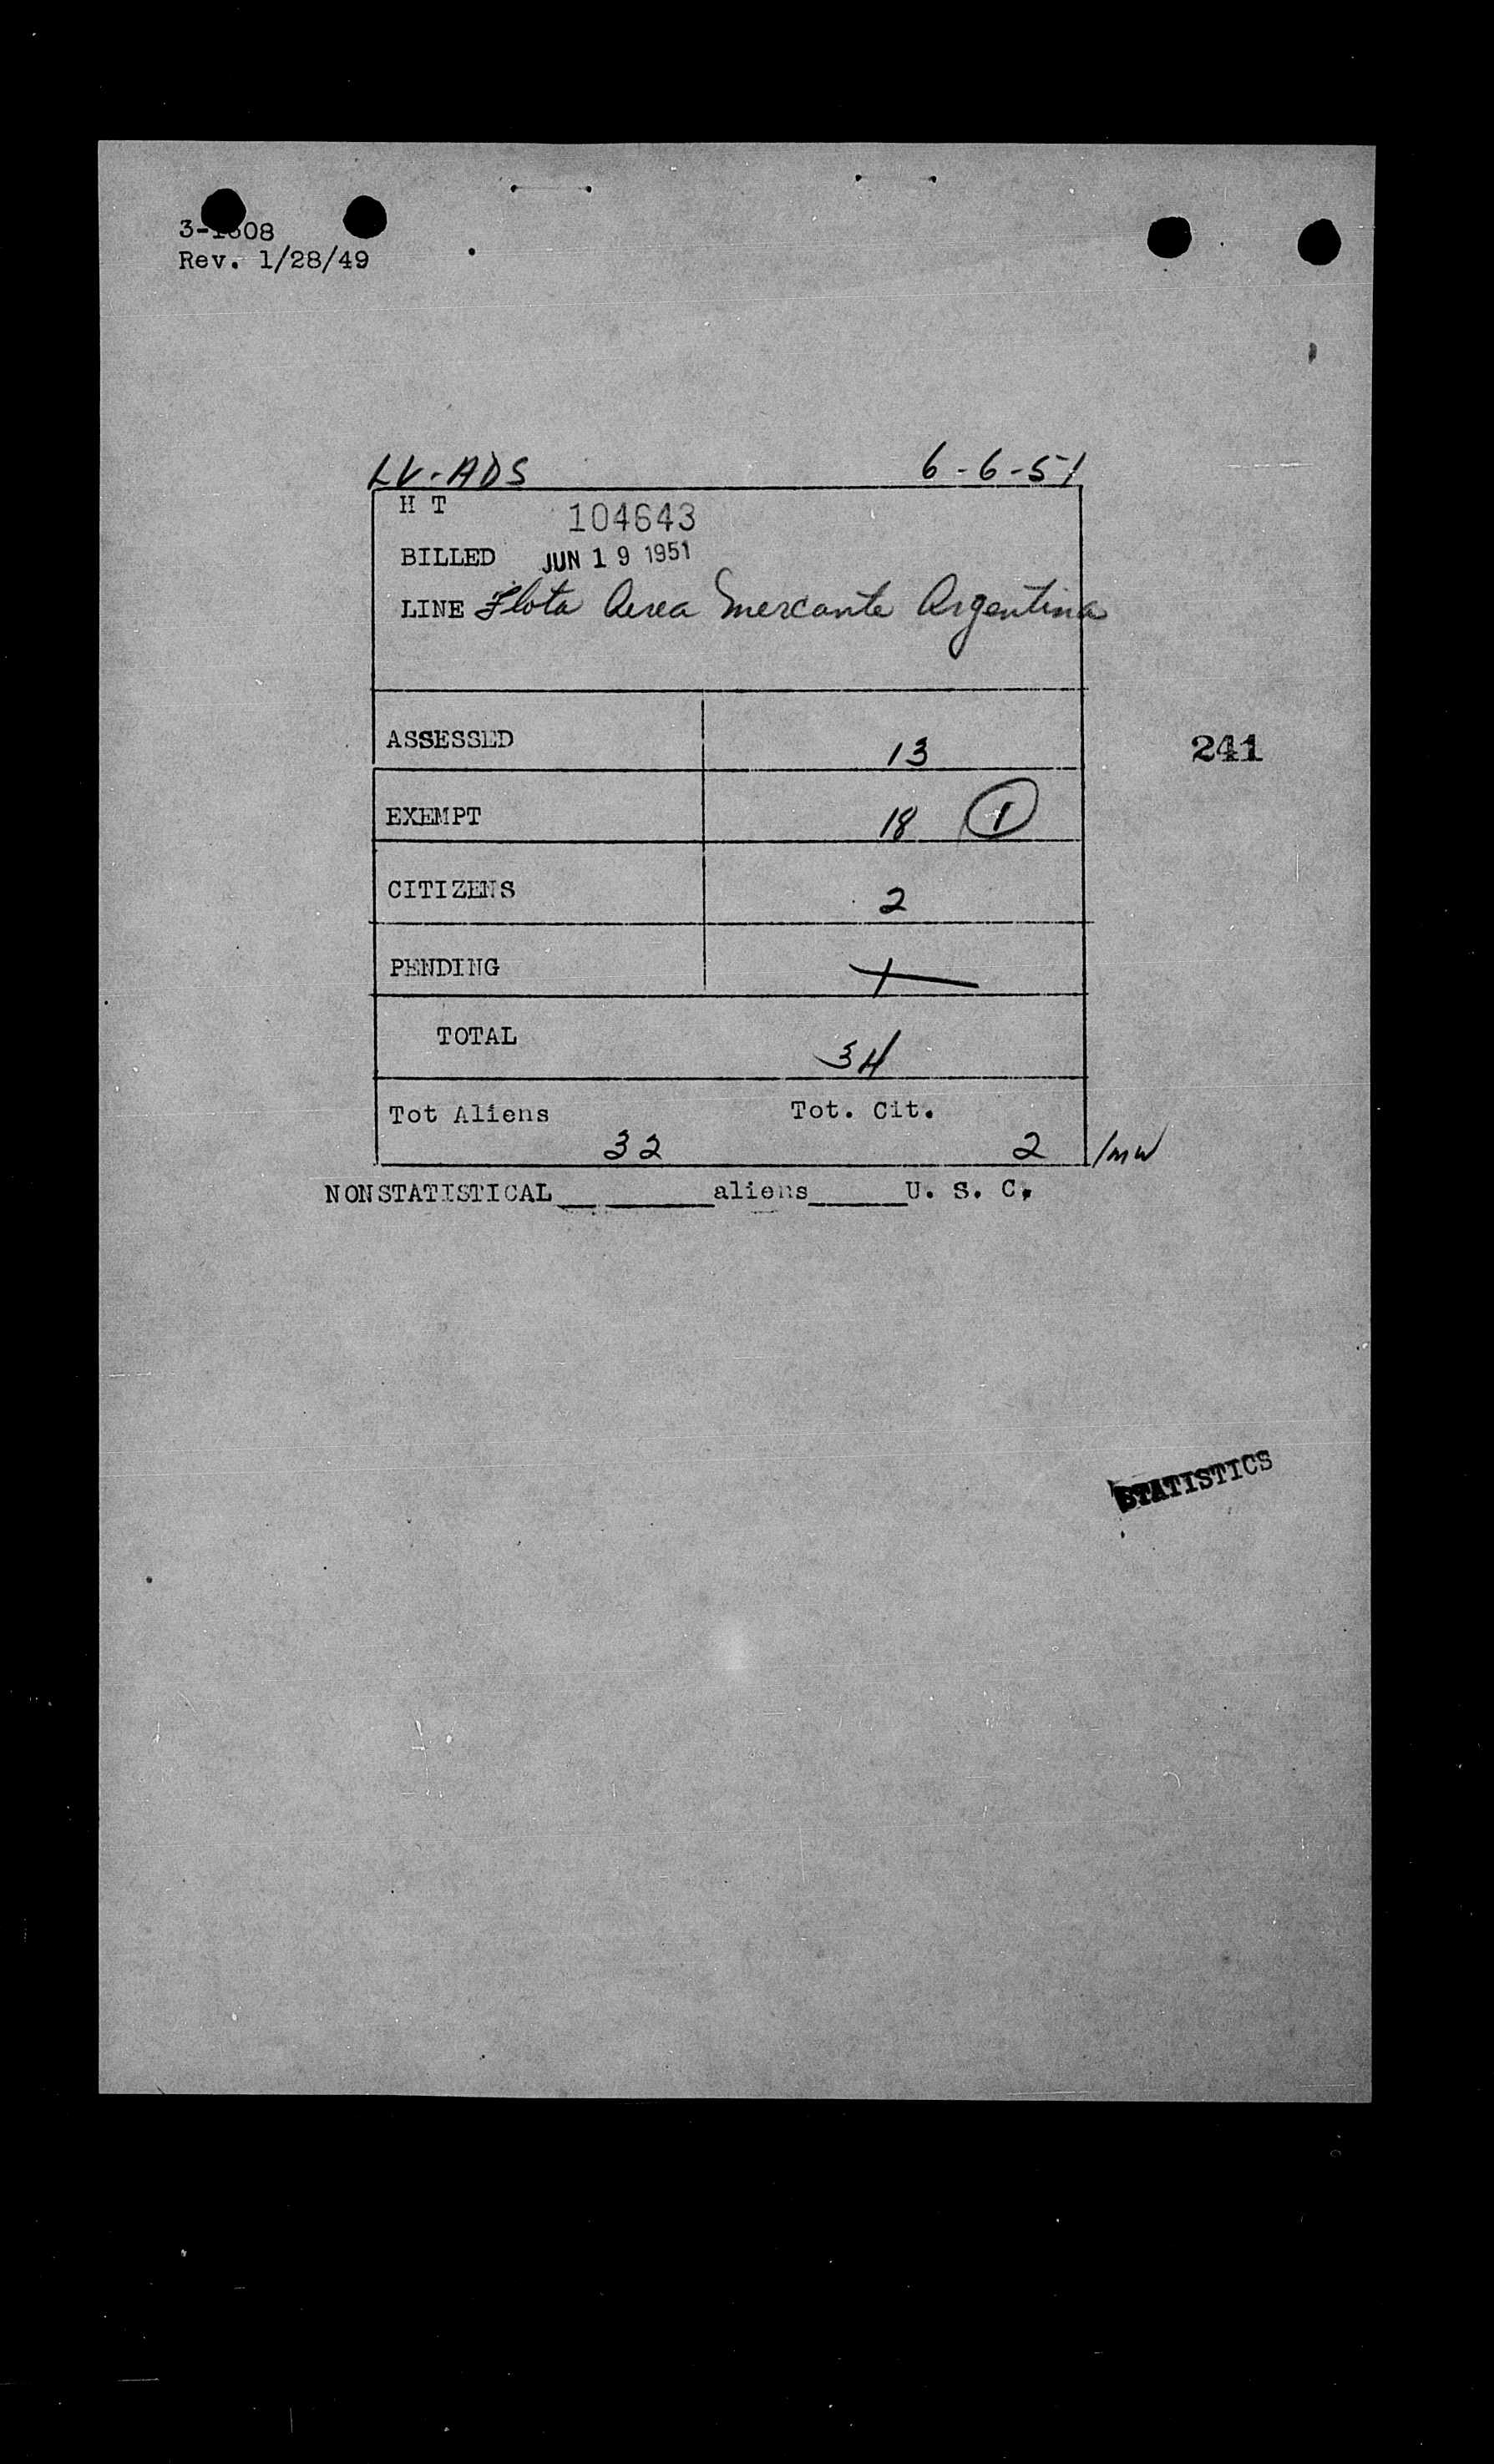 3-1608
Rev. 1/28/49
LV-ADS 6-6-51
H T 104643
BILLED JUN 19 1951
LINE Flota Aerea Mercante Argentina
ASSESSED 13
241
EXEMPT 18 1
CITIZENS 2
PENDING 1
TOTAL 34
Tot Aliens Tot. Cit.
32 2 /mw
NONSTATISTICAL aliens U. S. C.
STATISTICS